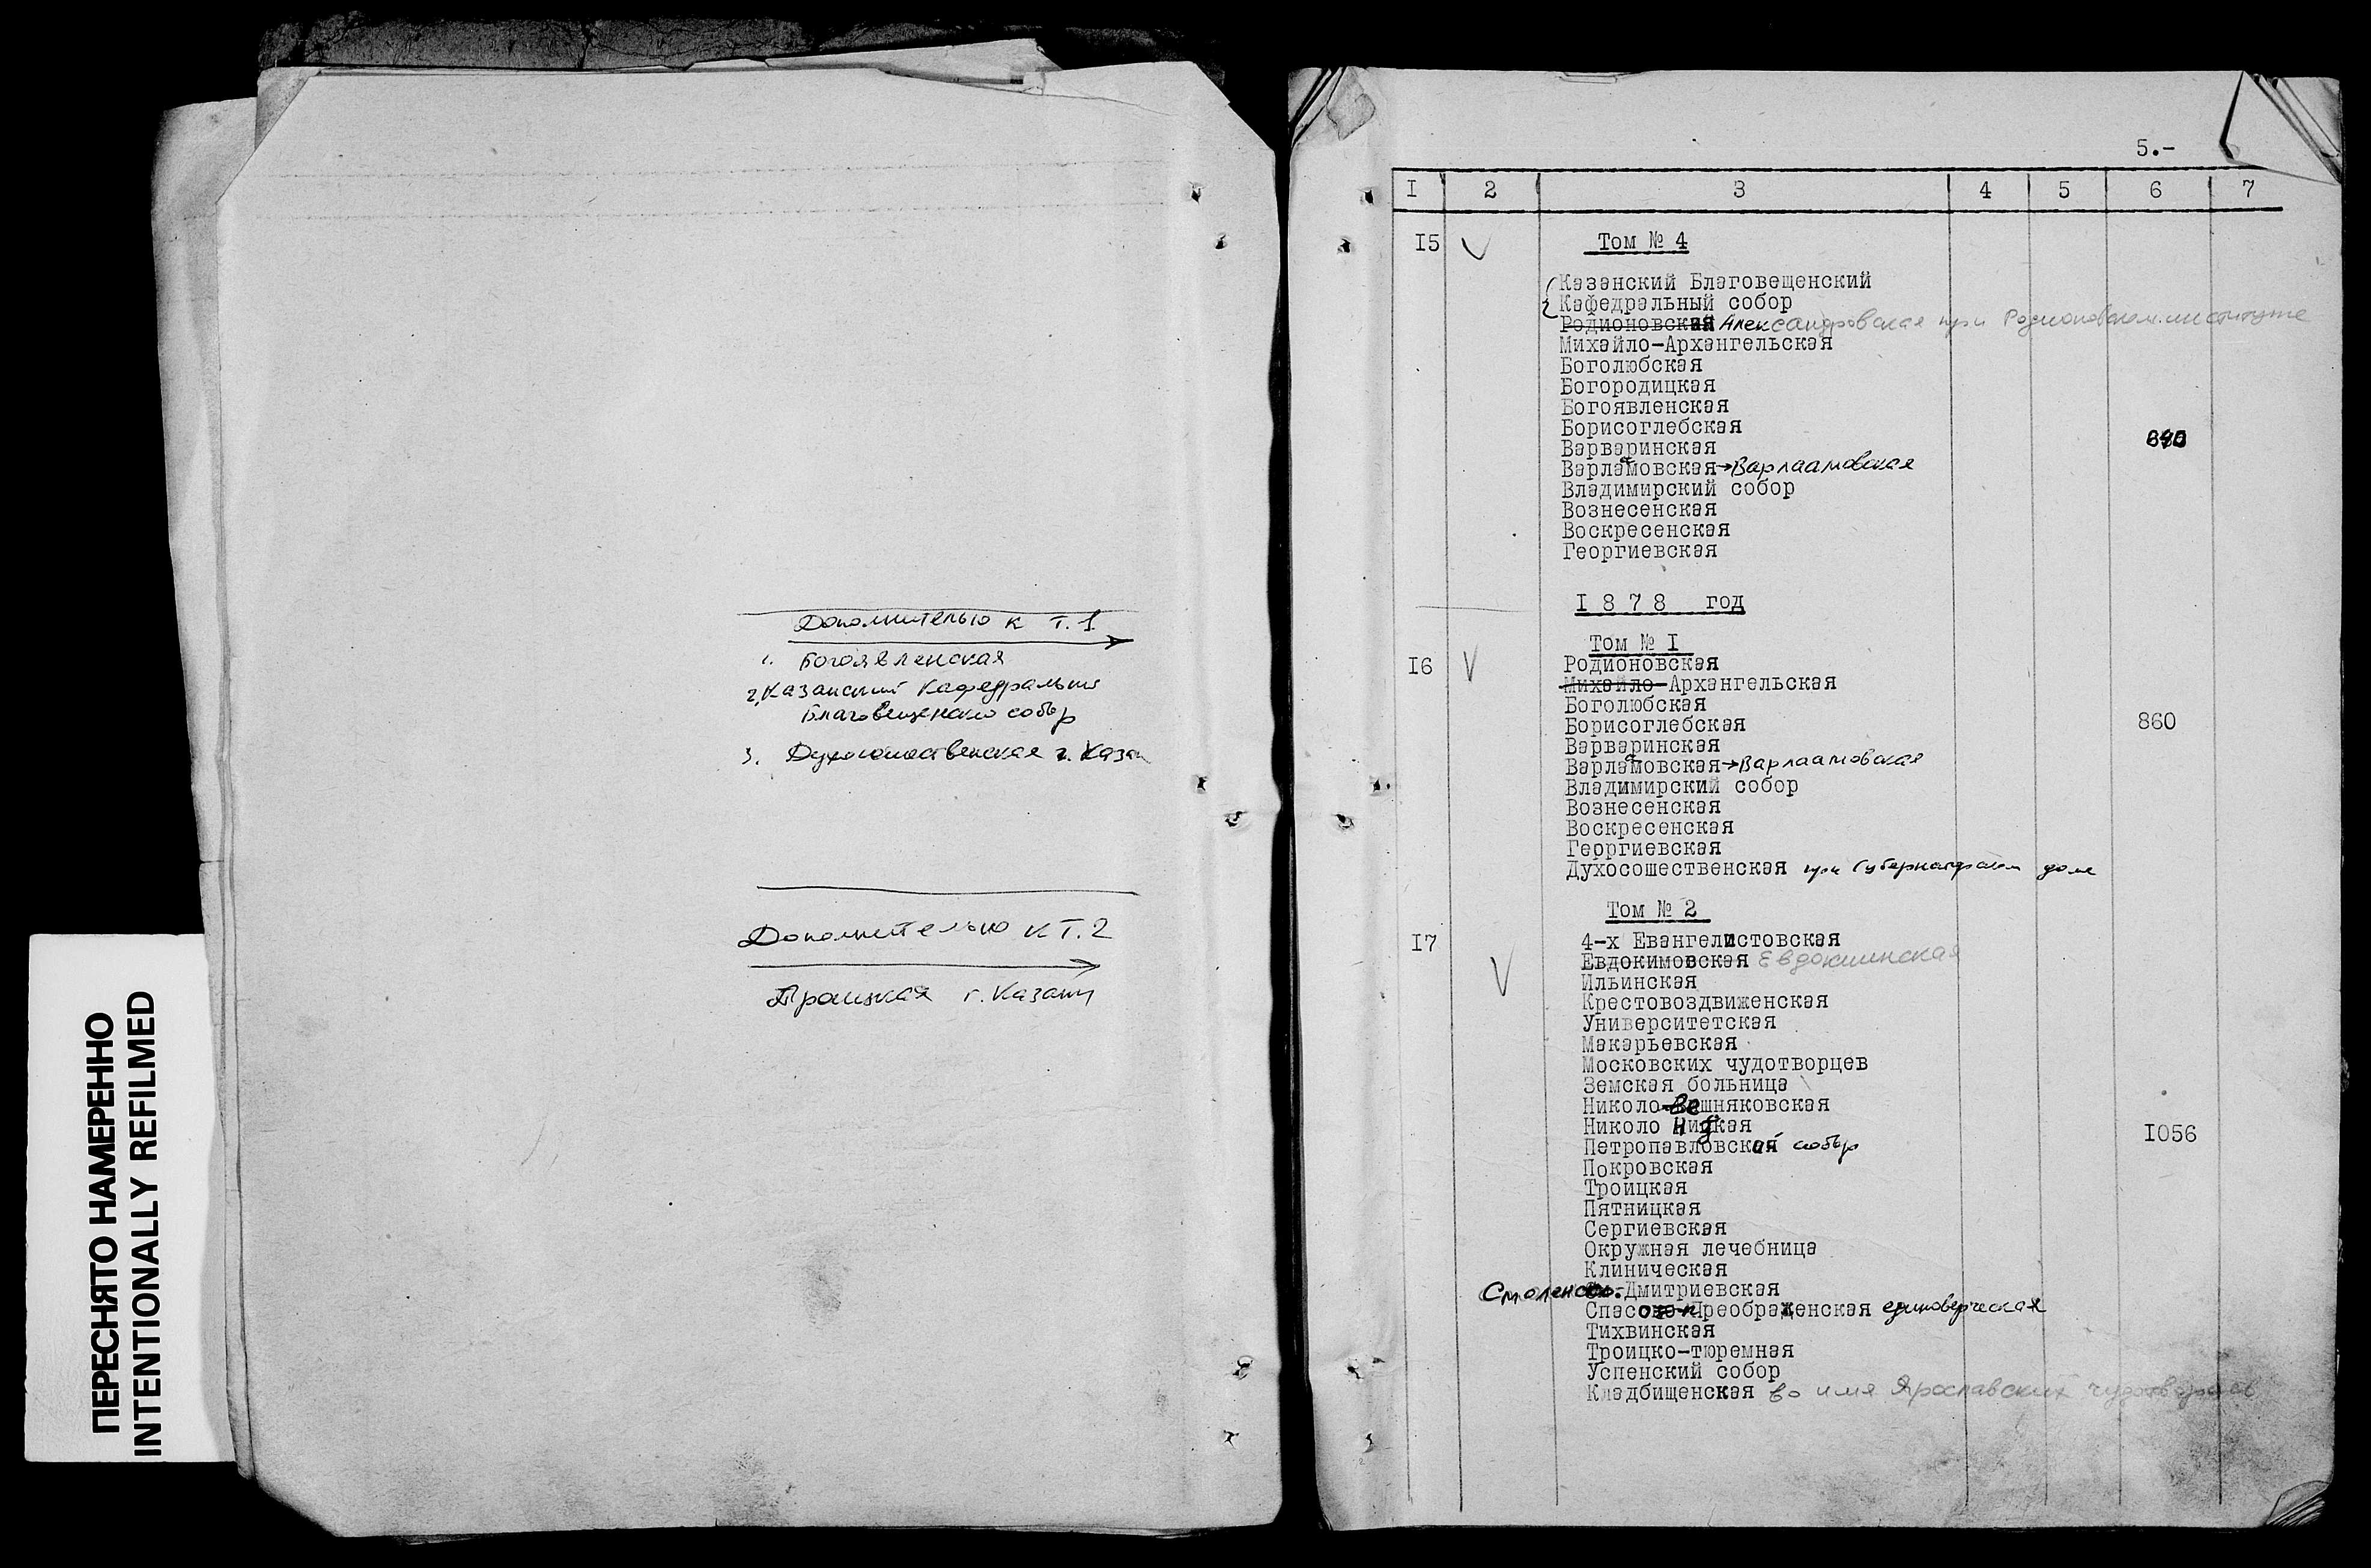 ПЕРЕСНЯТО НАМЕРЕННО
INTENTIONALLY REFILMED
Дополнительно к т. 1
1. Богоявленская
2. Казанский Кафедральный
Благовещенский собор
3. Духосошественская г. Казан
Дополнительно к т. 2
Троицкая г. Казани
5.-
I 2 3 4 5 6 7
I5 V Том № 4
Казанский Благовещенский
Кафедральный собор
Родионовская Александровская при Родионовском институте
Михайло-Архангельская
Боголюбская
Богородицкая
Богоявленская
Борисоглебская
Варваринская
Варламовская→Варлаамовская
Владимирский собор
Вознесенская
Воскресенская
Георгиевская
I 8 7 8 год
Том № I
I6 V Родионовская
Михайло-Архангельская
Боголюбская
Борисоглебская 860
Варваринская
Варламовская→Варлаамовская
Владимирский собор
Вознесенская
Воскресенская
Георгиевская
Духосошественская при Губернаторском доме
Том № 2
I7 V 4-х Евангелистовская
Евдокимовская Евдокиинская
Ильинская
Крестовоздвиженская
Университетская
Макарьевская
Московских чудотворцев
Земская больница
Николо-Вешняковская
Николо Нидкая
Петропавловский собор I056
Покровская
Троицкая
Пятницкая
Сергиевская
Окружная лечебница
Клиническая
Смоленско-Дмитриевская
Спасо-Преображенская единоверческая
Тихвинская
Троицко-тюремная
Успенский собор
Кладбищенская во имя Ярославских чудотворцев